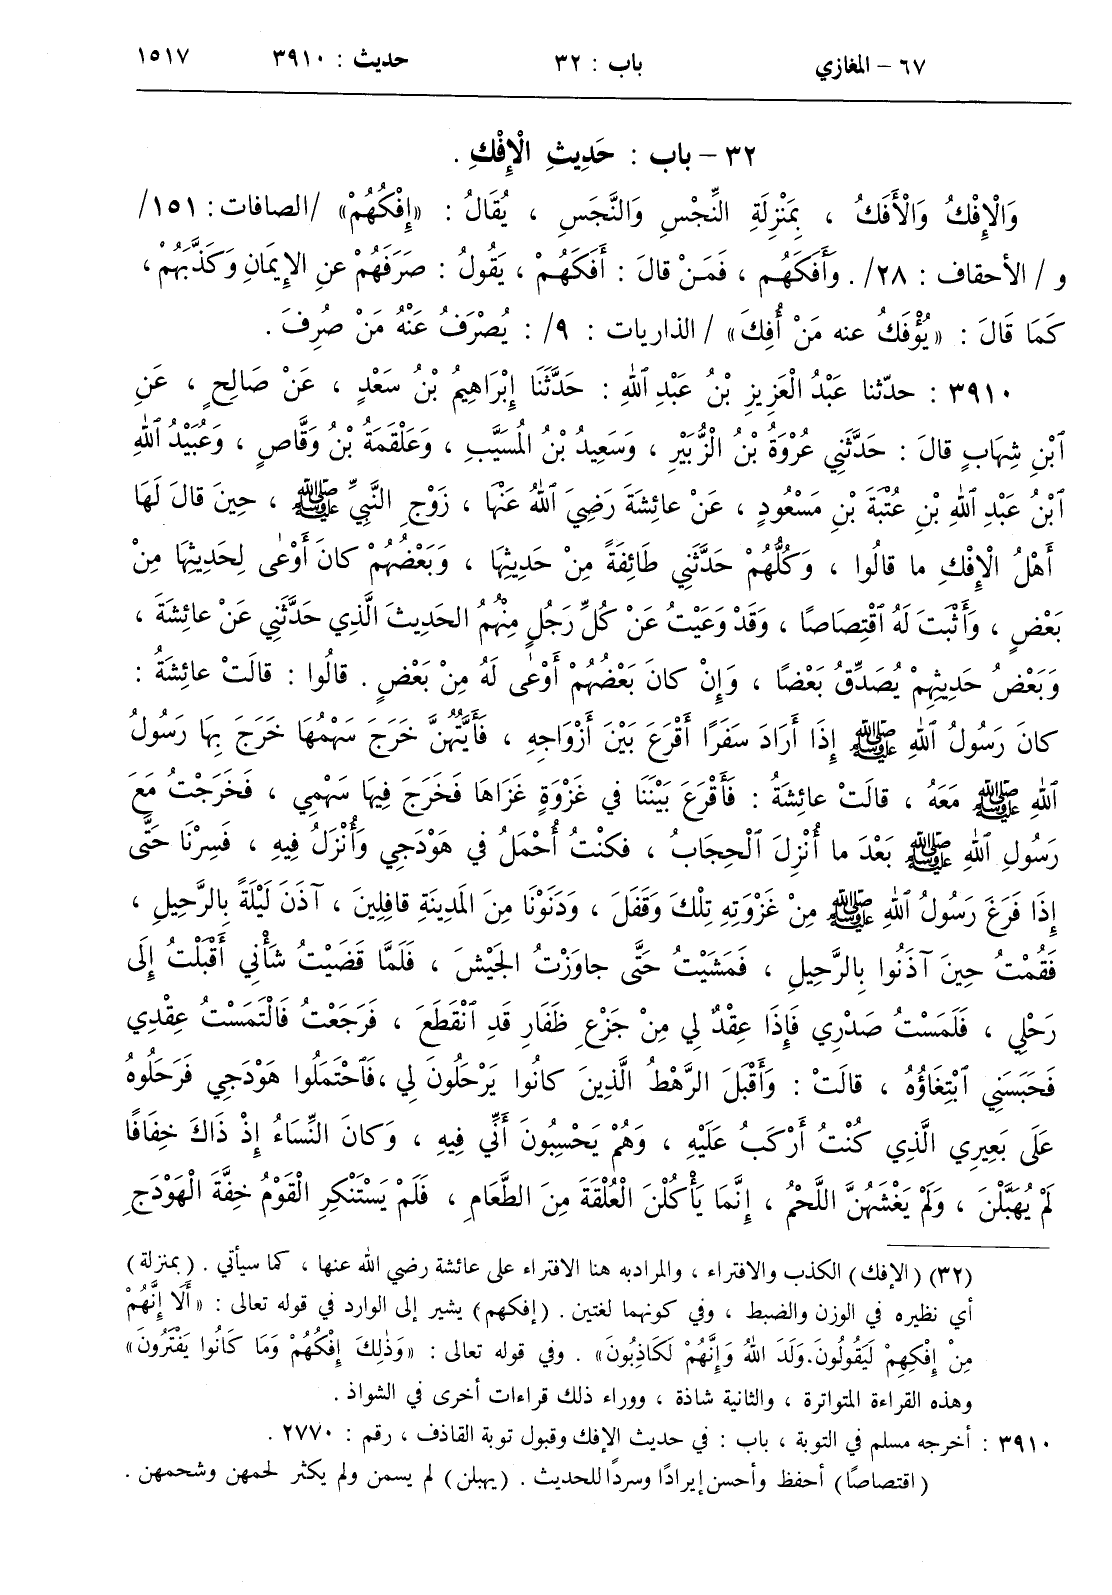 ٦٧ - المغازي باب : ٣٢ حديث : ٣٩١٠ ١٥١٧
٣٢ - باب : حَدِيثِ الْإِفْكِ .
وَالْإِفْكُ وَالْأَفَكُ ، بِمَنْزِلَةِ النِّجْسِ وَالنَّجَسِ ، يُقَالُ : «إِفْكُهُمْ» /الصافات : ١٥١/
و / الأحقاف : ٢٨/ . وَأَفَكَهُم ، فَمَنْ قالَ : أَفَكَهُمْ ، يَقُولُ : صَرَفَهُمْ عنِ الإِيمَانِ وَكَذَّبَهُمْ ،
كَمَا قَالَ : «يُؤْفَكُ عنه مَنْ أُفِكَ» / الذاريات : ٩/ : يُصْرَفُ عَنْهُ مَنْ صُرِفَ .
٣٩١٠ : حدّثنا عَبْدُ الْعَزِيزِ بْنُ عَبْدِ ٱللهِ : حَدَّثَنَا إِبْرَاهِيمُ بْنُ سَعْدٍ ، عَنْ صَالِحٍ ، عَنِ
ٱبْنِ شِهَابٍ قالَ : حَدَّثَنِي عُرْوَةُ بْنُ الْزُّبَيْرِ ، وَسَعِيدُ بْنُ المُسَيَّبِ ، وَعَلْقَمَةُ بْنُ وَقَّاصٍ ، وَعُبَيْدُ ٱللهِ
ٱبْنُ عَبْدِ ٱللهِ بْنِ عُتْبَةَ بْنِ مَسْعُودٍ ، عَنْ عائِشَةَ رَضِيَ ٱللهُ عَنْهَا ، زَوْجِ النَّبِيِّ ﷺ ، حِينَ قالَ لَهَا
أَهْلُ الْإِفْكِ ما قالُوا ، وَكُلُّهُمْ حَدَّثَنِي طَائِفَةً مِنْ حَدِيثِهَا ، وَبَعْضُهُمْ كانَ أَوْعٰى لِحَدِيثِهَا مِنْ
بَعْضٍ ، وَأَثْبَتَ لَهُ ٱقْتِصَاصًا ، وَقَدْ وَعَيْتُ عَنْ كُلِّ رَجُلٍ مِنْهُمُ الحَدِيثَ الَّذِي حَدَّثَنِي عَنْ عائِشَةَ ،
وَبَعْضُ حَدِيثِهِمْ يُصَدِّقُ بَعْضًا ، وَإِنْ كانَ بَعْضُهُمْ أَوْعٰى لَهُ مِنْ بَعْضٍ . قالُوا : قالَتْ عائِشَةُ :
كانَ رَسُولُ ٱللهِ ﷺ إِذَا أَرَادَ سَفَرًا أَقْرَعَ بَيْنَ أَزْوَاجِهِ ، فَأَيَّتُهُنَّ خَرَجَ سَهْمُهَا خَرَجَ بِهَا رَسُولُ
ٱللهِ ﷺ مَعَهُ ، قالَتْ عائِشَةُ : فَأَقْرَعَ بَيْنَنَا في غَزْوَةٍ غَزَاهَا فَخَرَجَ فِيهَا سَهْمِي ، فَخَرَجْتُ مَعَ
رَسُولِ ٱللهِ ﷺ بَعْدَ ما أُنْزِلَ ٱلْحِجَابُ ، فكنْتُ أُحْمَلُ في هَوْدَجِي وَأُنْزَلُ فِيهِ ، فَسِرْنَا حَتَّى
إِذَا فَرَغَ رَسُولُ ٱللهِ ﷺ مِنْ غَزْوَتِهِ تِلْكَ وَقَفَلَ ، وَدَنَوْنَا مِنَ المَدِينَةِ قافِلِينَ ، آذَنَ لَيْلَةً بِالرَّحِيلِ ،
فَقُمْتُ حِينَ آذَنُوا بِالرَّحِيلِ ، فَمَشَيْتُ حَتَّى جاوَزْتُ الجَيْشَ ، فَلَمَّا قَضَيْتُ شَأْنِي أَقْبَلْتُ إِلَى
رَحْلِي ، فَلَمَسْتُ صَدْرِي فَإِذَا عِقْدٌ لِي مِنْ جَزْعِ ظَفَارِ قَدِ ٱنْقَطَعَ ، فَرَجَعْتُ فَالْتَمَسْتُ عِقْدِي
فَحَبَسَنِي ٱبْتِغَاؤُهُ ، قالَتْ : وَأَقْبَلَ الرَّهْطُ الَّذِينَ كانُوا يَرْحَلُونَ لِي ،فَٱحْتَمَلُوا هَوْدَجِي فَرَحَلُوهُ
عَلَى بَعِيرِي الَّذِي كُنْتُ أَرْكَبُ عَلَيْهِ ، وَهُمْ يَحْسِبُونَ أَنِّي فِيهِ ، وَكانَ النِّسَاءُ إِذْ ذَاكَ خِفَافًا
لَمْ يُهَبَّلْنَ ، وَلَمْ يَغْشَهُنَّ اللَّحْمُ ، إِنَّمَا يَأْكُلْنَ الْعُلْقَةَ مِنَ الطَّعَامِ ، فَلَمْ يَسْتَنْكِرِ الْقَوْمُ خِفَّةَ الْهَوْدَجِ
(٣٢) (الإفك) الكذب والافتراء ، والمرادبه هنا الافتراء على عائشة رضي الله عنها ، كما سيأتي . (بمنزلة)
أي نظيره في الوزن والضبط ، وفي كونهما لغتين . (إفكهم) يشير إلى الوارد في قوله تعالى : «أَلَا إِنَّهُمْ
مِنْ إِفْكِهِمْ لَيَقُولُونَ.وَلَدَ اللهُ وَإِنَّهُمْ لَكَاذِبُونَ» . وفي قوله تعالى : «وَذٰلِكَ إِفْكُهُمْ وَمَا كَانُوا يَفْتَرُونَ»
وهذه القراءة المتواترة ، والثانية شاذة ، ووراء ذلك قراءات أخرى في الشواذ .
٣٩١٠ : أخرجه مسلم في التوبة ، باب : في حديث الإفك وقبول توبة القاذف ، رقم : ٢٧٧٠ .
(اقتصاصًا) أحفظ وأحسن إيرادًا وسردًا للحديث . (يهبلن) لم يسمن ولم يكثر لحمهن وشحمهن .